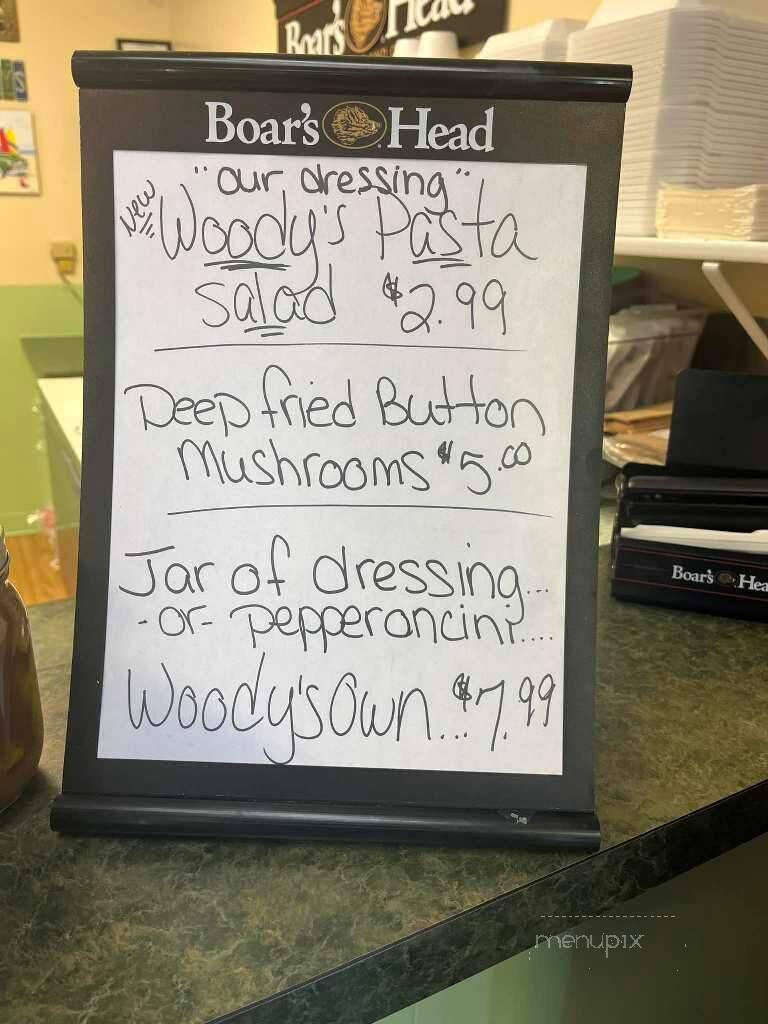 Boar's Head
Boar's Head
"our dressing"
New Woody's Pasta
salad $2.99
Deep fried Button
Mushrooms $5.00
Jar of dressing...
-or- pepperoncini....
Woody's Own...$7.99
Boar's Hea
menupix